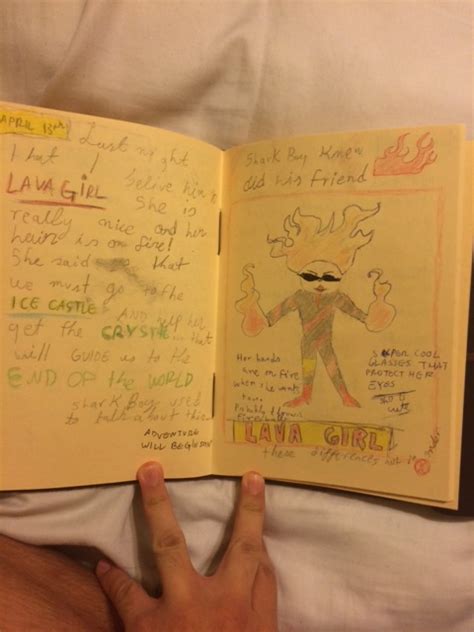 APRIL 13th
Last night
I hat I belive him to
LAVAGIRL She is
really nice and her
hair is on fire!
She said that
we must go to the
ICE CASTLE AND help her
get the CRYSTLE...that
will GUIDE us to the
END OF the WORLD
Shark Boy used
to talk about this
ADVENTURE
WILL BEGIN SOON
Shark Boy knew
did his friend
Her hands
are on fire
when she wants
Probably throws
Fireballs
SUPER COOL
GLASSES THAT
PROTECT HER
EYES
cute
LAVA GIRL
these differences not